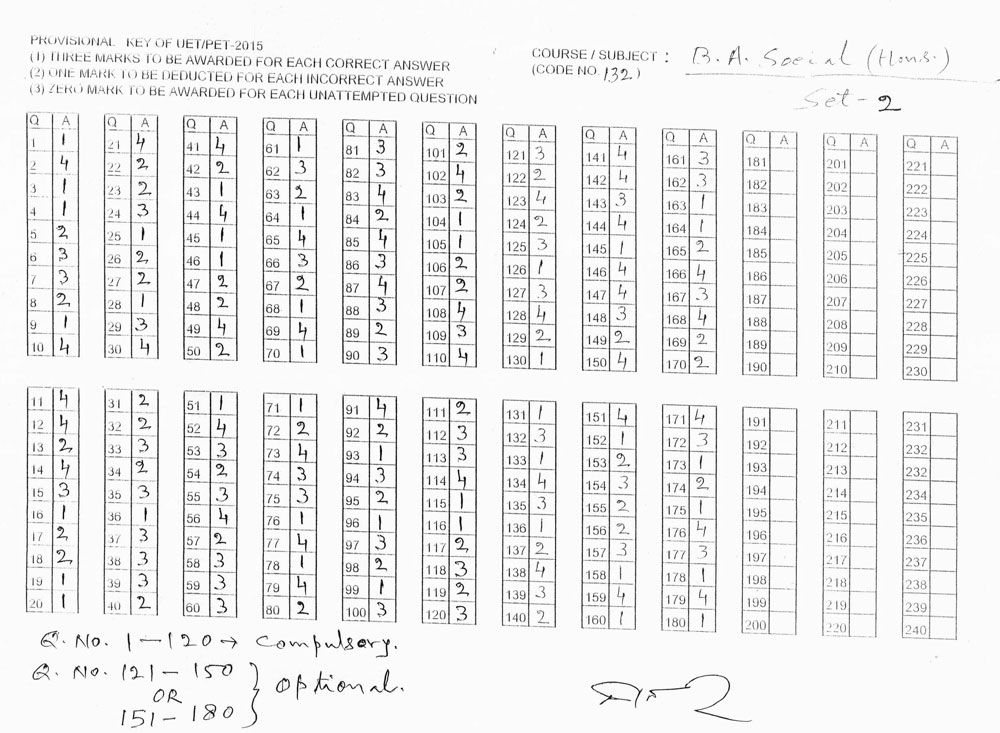 PROVISIONAL KEY OF UET/PET-2015
(1) THREE MARKS TO BE AWARDED FOR EACH CORRECT ANSWER
(2) ONE MARK TO BE DEDUCTED FOR EACH INCORRECT ANSWER
(3) ZERO MARK TO BE AWARDED FOR EACH UNATTEMPTED QUESTION
COURSE / SUBJECT : B.A. Social (Hons.)
(CODE NO. 132)
Set - 2
Q A Q A Q A Q A Q A Q A Q A Q A Q A Q A Q A Q A
1 1 21 4 41 4 61 1 81 3 101 2 121 3 141 4 161 3 181 201 221
2 4 22 2 42 2 62 3 82 3 102 4 122 2 142 4 162 3 182 202 222
3 1 23 2 43 1 63 2 83 4 103 2 123 4 143 3 163 1 183 203 223
4 1 24 3 44 4 64 1 84 2 104 1 124 2 144 4 164 1 184 204 224
5 2 25 1 45 1 65 4 85 4 105 1 125 3 145 1 165 2 185 205 225
6 3 26 2 46 1 66 3 86 3 106 2 126 1 146 4 166 4 186 206 226
7 3 27 2 47 2 67 2 87 4 107 2 127 3 147 4 167 3 187 207 227
8 2 28 1 48 2 68 1 88 3 108 4 128 4 148 3 168 4 188 208 228
9 1 29 3 49 4 69 4 89 2 109 3 129 2 149 2 169 2 189 209 229
10 4 30 4 50 2 70 1 90 3 110 4 130 1 150 4 170 2 190 210 230
11 4 31 2 51 1 71 1 91 4 111 2 131 1 151 4 171 4 191 211 231
12 4 32 2 52 4 72 2 92 2 112 3 132 3 152 1 172 3 192 212 232
13 2 33 3 53 3 73 4 93 1 113 3 133 1 153 2 173 1 193 213 232
14 4 34 2 54 2 74 3 94 3 114 4 134 4 154 3 174 2 194 214 234
15 3 35 3 55 3 75 3 95 2 115 1 135 3 155 2 175 1 195 215 235
16 1 36 1 56 4 76 1 96 1 116 1 136 1 156 2 176 4 196 216 236
17 2 37 3 57 2 77 4 97 3 117 2 137 2 157 3 177 3 197 217 237
18 2 38 3 58 3 78 1 98 2 118 3 138 4 158 1 178 1 198 218 238
19 1 39 3 59 3 79 4 99 1 119 2 139 3 159 4 179 4 199 219 239
20 1 40 2 60 3 80 2 100 3 120 3 140 2 160 1 180 1 200 220 240
Q. No. 1 – 120 → Compulsory.
Q. No. 121 – 150
OR
151 – 180 } Optional.